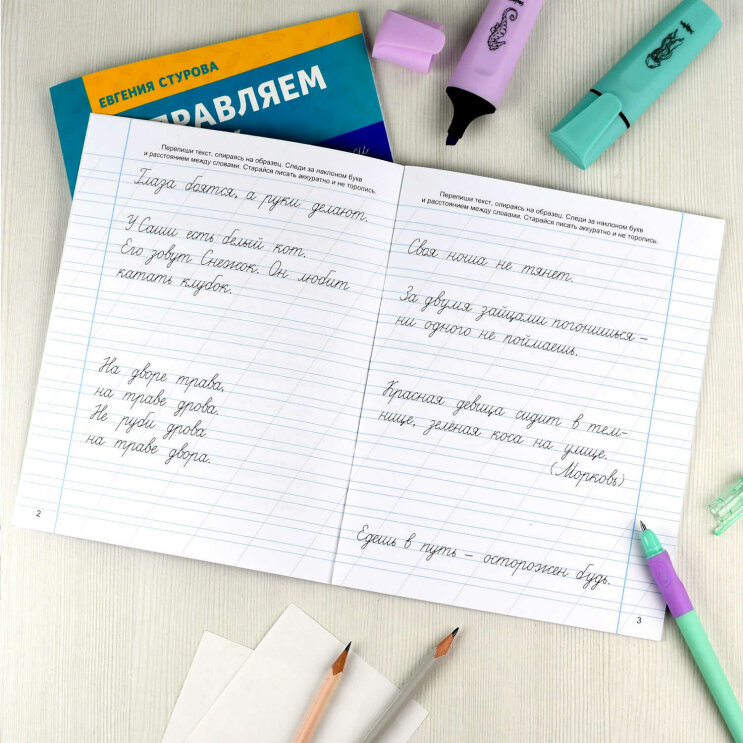 ЕВГЕНИЯ СТУРОВА
Перепиши текст, опираясь на образец. Следи за наклоном букв
и расстоянием между словами. Старайся писать аккуратно и не торопясь.
Глаза боятся, а руки делают.
У Саши есть белый кот.
Его зовут Снежок. Он любит
катать клубок.
На дворе трава,
на траве дрова.
Не руби дрова
на траве двора.
2
Перепиши текст, опираясь на образец. Следи за наклоном букв
и расстоянием между словами. Старайся писать аккуратно и не торопясь.
Своя ноша не тянет.
За двумя зайцами погонишься –
ни одного не поймаешь.
Красная девица сидит в тем-
нице, зелёная коса на улице.
(Морковь)
Едешь в путь – осторожен будь.
3